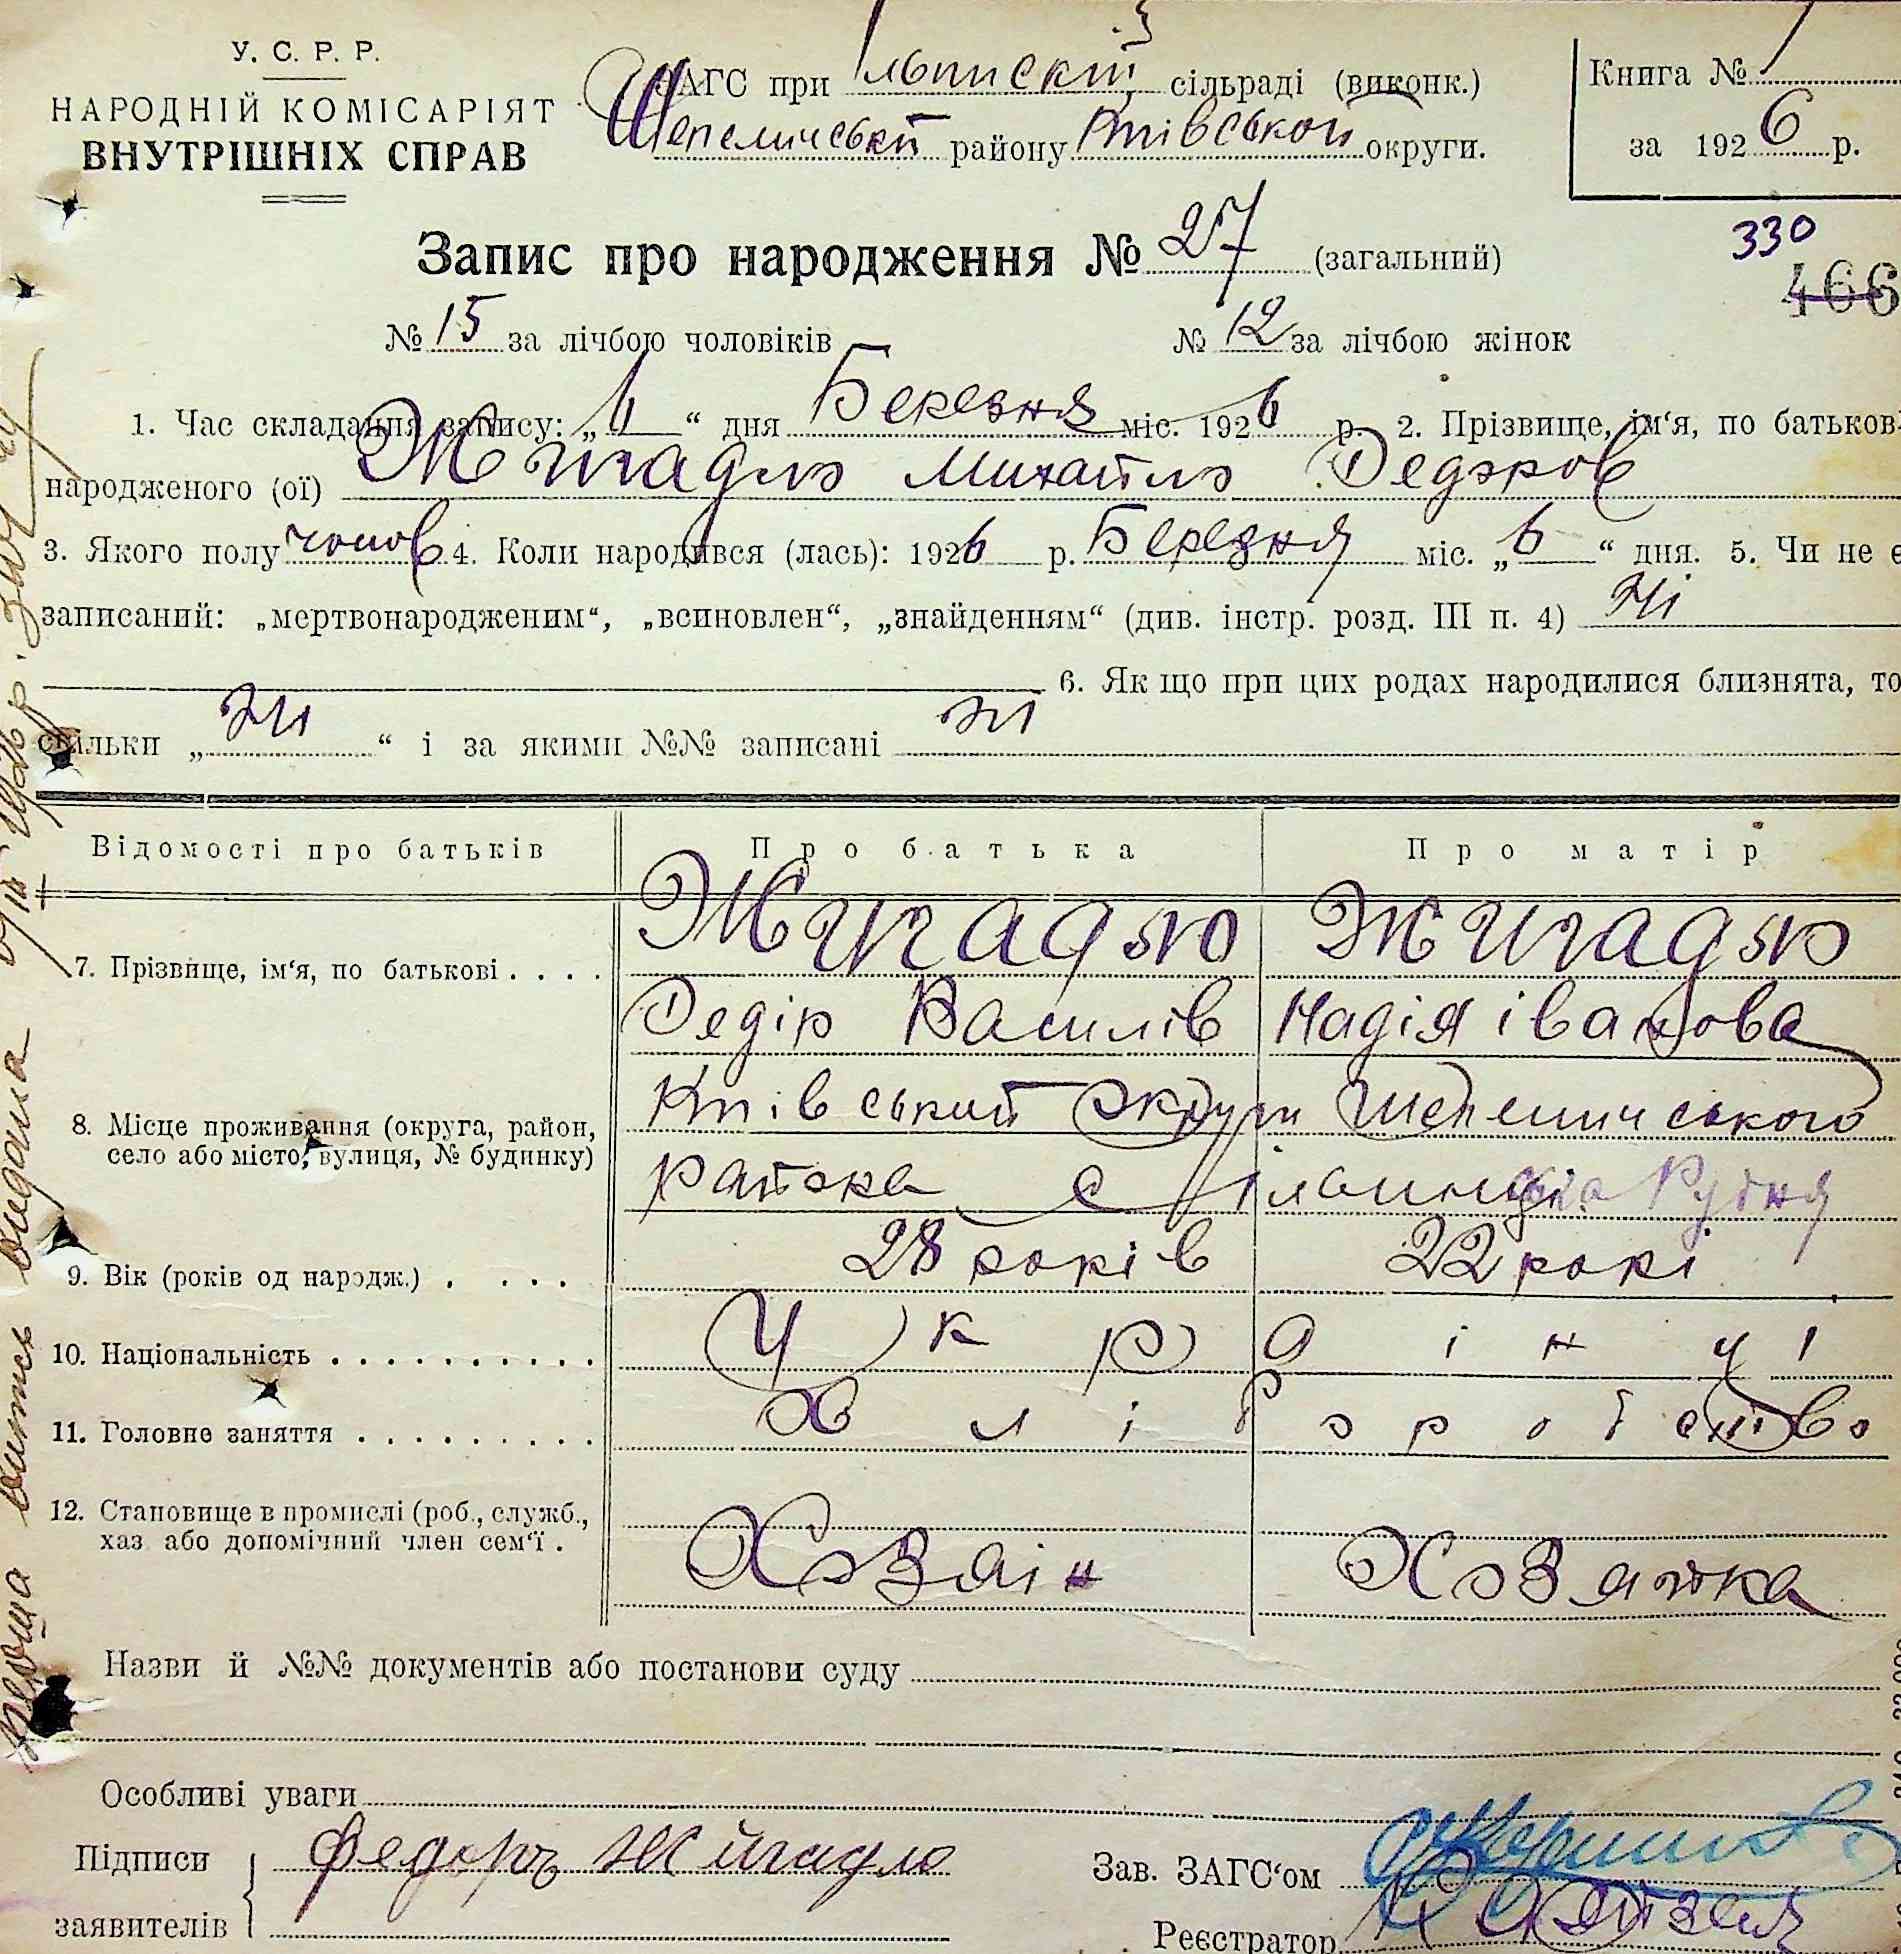 У. С. Р. Р.
НАРОДНІЙ КОМІСАРІЯТ
ВНУТРІШНІХ СПРАВ
ЗАГС при сільраді (виконк.)
Шепелицьк району Київської округи.
Книга № 1
за 1926 р.
Запис про народження № 27 (загальний)
330
466
№ 15 за лічбою чоловіків № 12 за лічбою жінок
1. Час складання запису: „6“ дня Березня міс. 1926 р. 2. Прізвище, ім‘я, по батьков
народженого (ої) Жигадло Михайло Федоров
3. Якого полу чолов 4. Коли народився (лась): 1926 р. Березня міс. „6“ дня. 5. Чи не є
записаний: „мертвонародженим“, „всиновлен“, „знайденням“ (див. інстр. розд. III п. 4) Ні
6. Як що при цих родах народилися близнята, то
скільки „ні“ і за якими №№ записані ні
Відомості про батьків Про батька Про матір
7. Прізвище, ім‘я, по батькові . . . . Жигадло Жигадло
Федір Василів Надія іванова
8. Місце проживання (округа, район, село або місто, вулиця, № будинку) Київський округи Шепелицького
района с Рудня
9. Вік (років од народж.) . . . . 28 років 22 рокі
10. Національність . . . . . . . . . . Українці
11. Головне заняття . . . . . . . . . Хліборобство
12. Становище в промислі (роб., служб., хаз або допомічний член сем‘ї . Хозаін Хозяйка
Назви й №№ документів або постанови суду
Особливі уваги
Підписи Федоръ Жигадло
заявителів
Зав. ЗАГС‘ом
Реєстратор